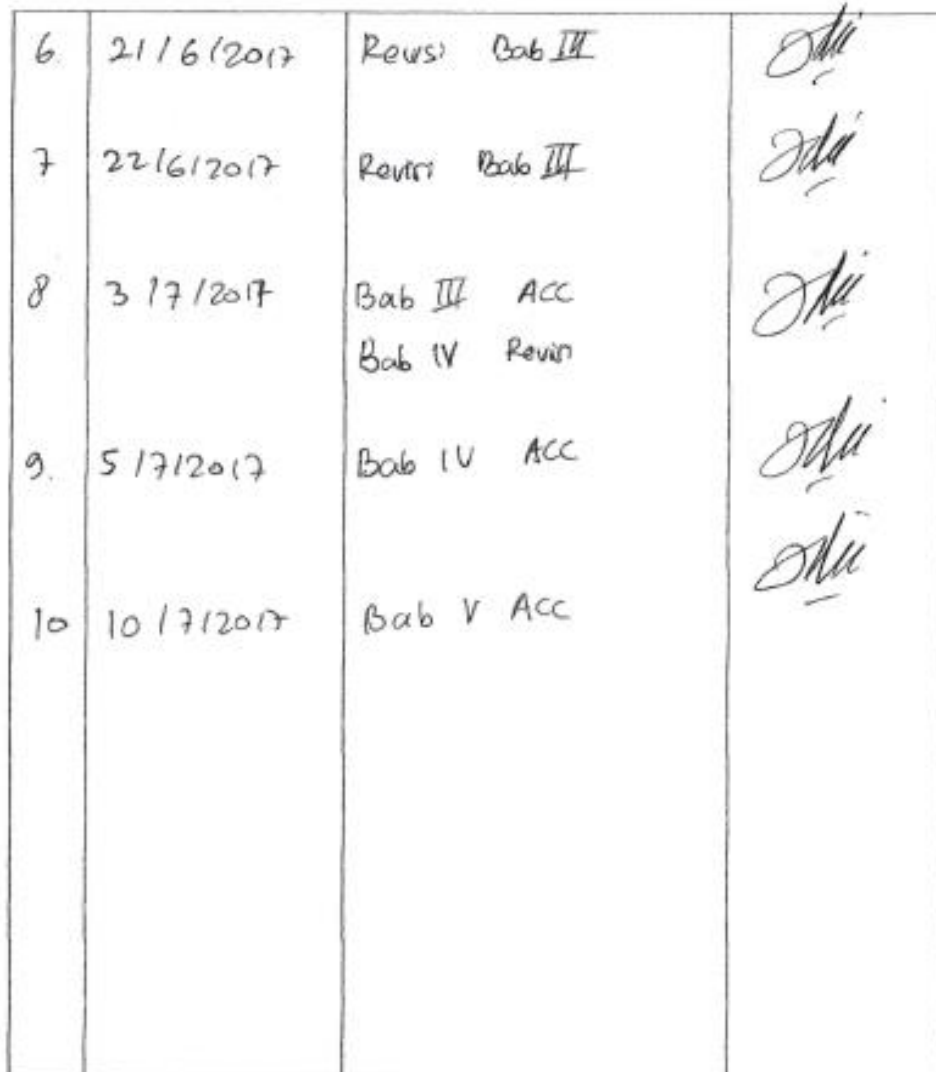 6. 21/6/2017 Revisi Bab III
7 22/6/2017 Revisi Bab III
8 3/7/2017 Bab III ACC
Bab IV Revisi
9. 5/7/2017 Bab IV ACC
10 10/7/2017 Bab V ACC